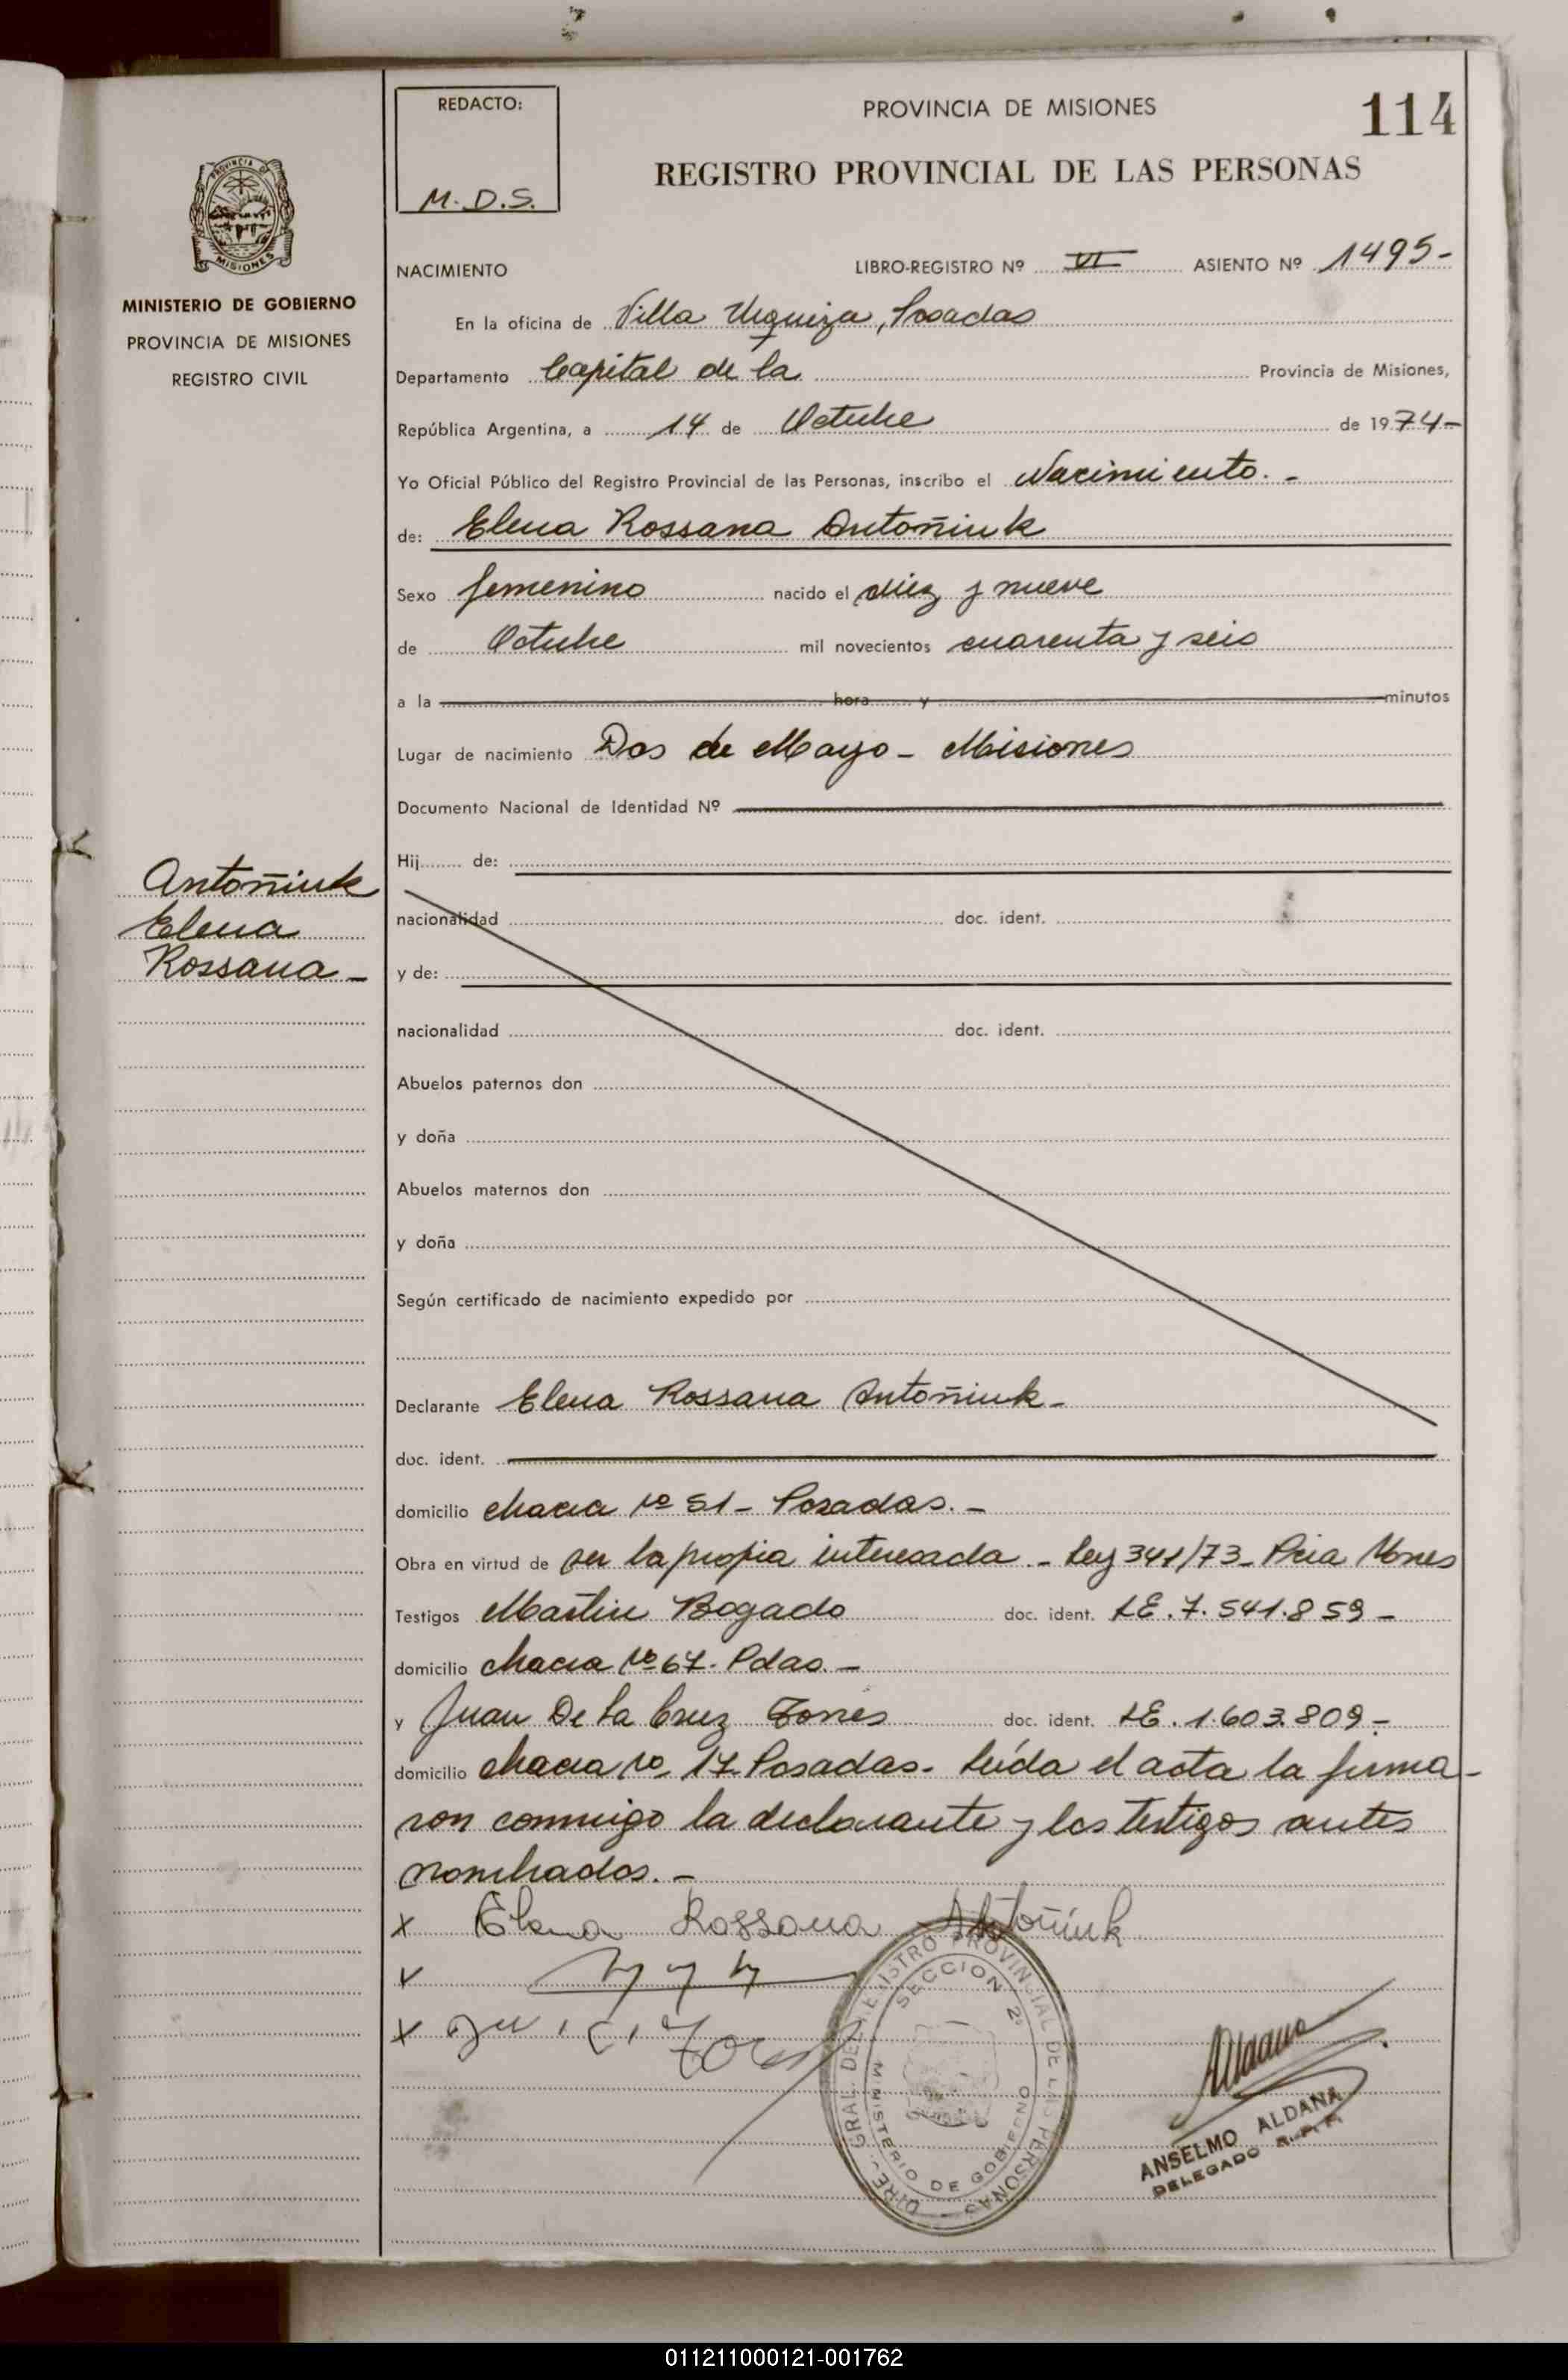 REDACTO:
M.D.S.
PROVINCIA DE MISIONES
114
REGISTRO PROVINCIAL DE LAS PERSONAS
PROVINCIA DE
MISIONES
MINISTERIO DE GOBIERNO
PROVINCIA DE MISIONES
REGISTRO CIVIL
NACIMIENTO LIBRO-REGISTRO Nº VI ASIENTO Nº 1495-
En la oficina de Villa Urquiza, Posadas
Departamento Capital de la Provincia de Misiones,
República Argentina, a 14 de Octubre de 1974-
Yo Oficial Público del Registro Provincial de las Personas, inscribo el Nacimiento.-
de: Elena Rossana Antoñiuk
Sexo femenino nacido el diez y nueve
de Octubre mil novecientos cuarenta y seis
a la hora y minutos
Lugar de nacimiento Dos de Mayo - Misiones
Documento Nacional de Identidad Nº
Hij de:
Antoñiuk
Elena
Rossana -
nacionalidad doc. ident.
y de:
nacionalidad doc. ident.
Abuelos paternos don
y doña
Abuelos maternos don
y doña
Según certificado de nacimiento expedido por
Declarante Elena Rossana Antoñiuk-
doc. ident.
domicilio chacra Nº 51 - Posadas.-
Obra en virtud de ser la propia interesada - Ley 341/73 - Pcia Mnes
Testigos Martin Bogado doc. ident. LE. 7.541.859-
domicilio chacra Nº 67. Pdas.-
y Juan De La Cruz Torres doc. ident. LE. 1.603.809-
domicilio chacra Nº 17 Posadas. Leída el acta la firma-
ron conmigo la declarante y los testigos antes
nombrados.-
x Elena Rossana Antoñiuk
x
x
DIREC. GRAL. DEL REGISTRO PROVINCIAL DE LAS PERSONAS
SECCION 2ª
MINISTERIO DE GOBIERNO
Aldana
ANSELMO ALDANA
DELEGADO R.P.P.
011211000121-001762